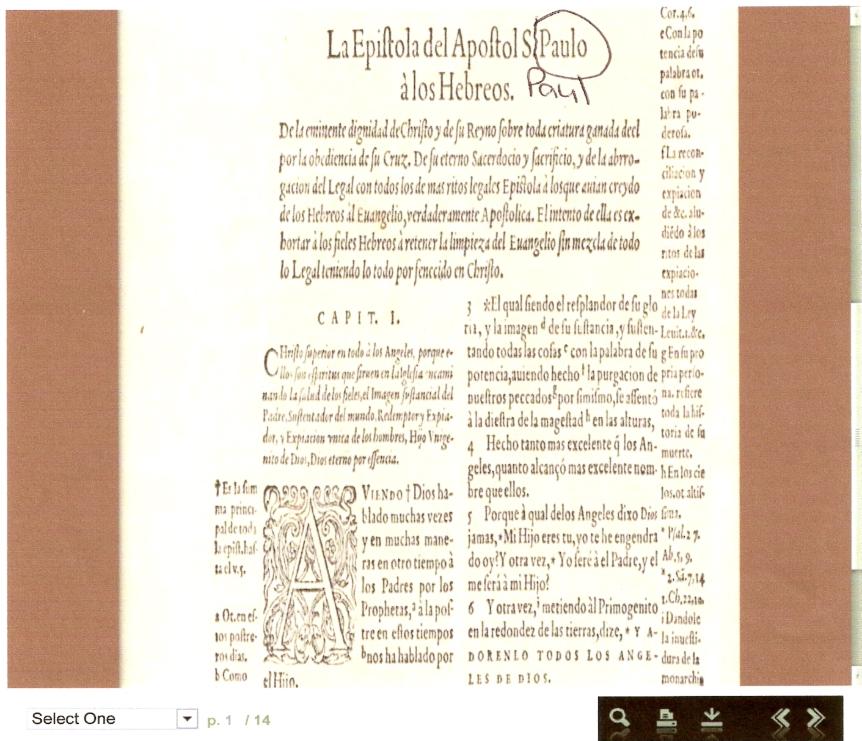 La Epiſtola del Apoſtol S. Paulo
à los Hebreos. Paul
De la eminente dignidad de Chriſto y de ſu Reyno ſobre toda criatura ganada
por la obediencia de ſu Cruz. De ſu eterno Sacerdocio y ſacrificio, y de la abrro-
gacion del Legal con todos los de mas ritos legales Epiſtola à los que auian creydo
de los Hebreos àl Euangelio, verdaderamente Apoſtolica. El intento de ella es ex-
hortar à los fieles Hebreos à retener la limpieza del Euangelio ſin mezcla de todo
lo Legal teniendo lo todo por fenecido en Chriſto.
CAPIT. I.
CHriſto ſuperior en todo à los Angeles, porque e-
llos ſon eſpiritus que ſiruen en la Igleſia encami
nando la ſalud de los fieles, el Imagen ſuſtancial del
Padre, Suſtentador del mundo, Redemptor y Expia-
dor, y Expiacion vnica de los hombres, Hijo Vnige-
nito de Dios, Dios eterno por eſſencia.
AVIENDO † Dios ha-
blado muchas vezes
y en muchas mane-
ras en otro tiempo à
los Padres por los
Prophetas, ª à la poſ-
tre en eſtos tiempos
ᵇ nos ha hablado por
el Hijo.
† Es la ſum
ma princi-
pal de toda
la epiſt. haſ-
ta el v. 5.
a Ot. en eſ-
tos poſtre-
ros dias.
b Como
3 *El qual ſiendo el reſplandor de ſu glo
ria, y la imagen ᵈ de ſu ſuſtancia, y ſuſten-
tando todas las coſas ᵉ con la palabra de ſu
potencia, auiendo hecho ᶠ la purgacion de
nueſtros peccados ᵍ por ſimiſmo, ſe aſſentó
à la dieſtra de la mageſtad ʰ en las alturas,
4 Hecho tanto mas excelente q̃ los An-
geles, quanto alcançó mas excelente nom-
bre que ellos.
5 Porque à qual delos Angeles dixo Dios
jamas, * Mi Hijo eres tu, yo te he engendra
do oy? Y otra vez, * Yo ſeré à el Padre, y el
me ſerá à mi Hijo?
6 Y otra vez, ⁱ metiendo àl Primogenito
en la redondez de las tierras, dize, * Y A-
DORENLO TODOS LOS ANGE-
LES DE DIOS.
Cor. 4, 6.
e Con la po
tencia deſu
palabra ot.
con ſu pa-
labra po-
deroſa.
f La recon-
ciliacion y
expiacion
de &c. alu-
diẽdo à los
ritos de las
expiacio-
nes todas
de la Ley
Leuit. 1. &c.
g En ſu pro
pria perſo-
na. refiere
toda la hiſ-
toria de ſu
muerte.
h En los cie
los. ot altiſ-
ſima.
* Pſal. 2 7.
* 2. Sã. 7, 14
1. Ch, 22, 10.
i Dandole
la inueſti-
dura de la
monarchia
Select One
p. 1 / 14